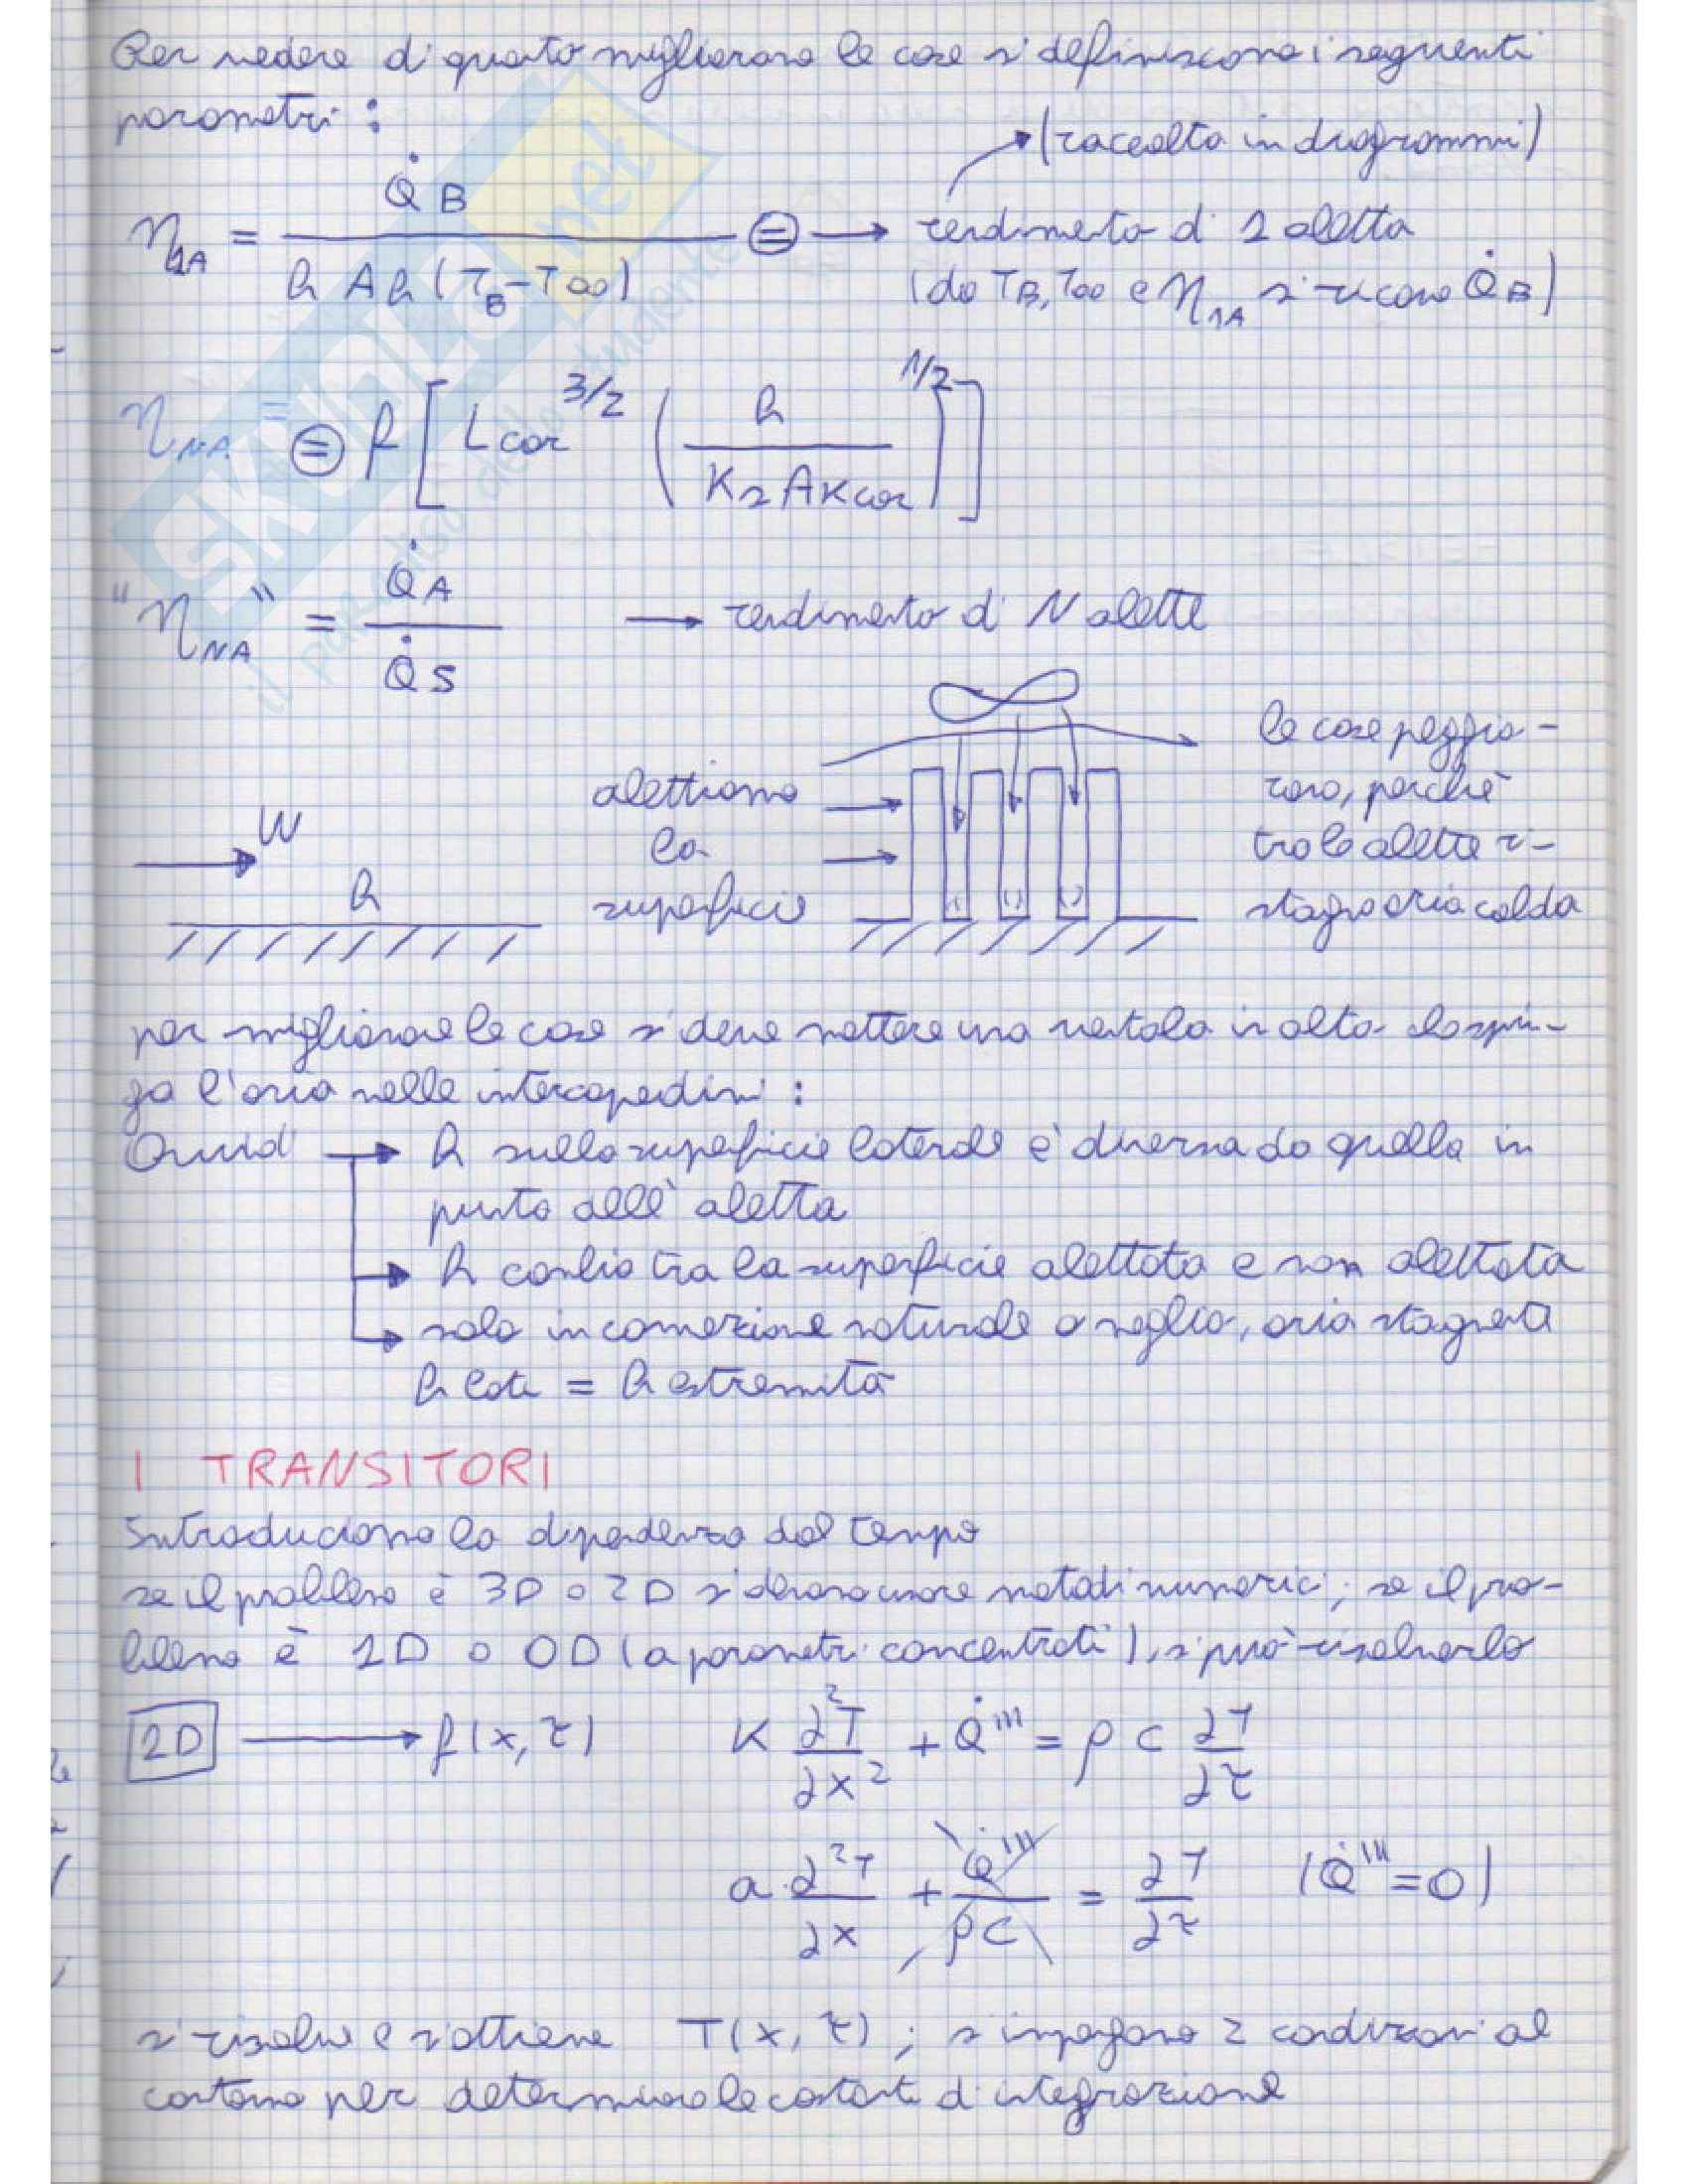 Per vedere di quanto migliorano le cose si definiscono i seguenti
parametri:
(raccolta in diagrammi)
η1A = Q̇B / (h Ah (TB - T∞)) = → rendimento di 1 aletta
(da TB, T∞ e η1A si ricava Q̇B)
ηNA = = f [ Lcor^3/2 ( h / (Ks AKcor) )^1/2 ]
"ηNA" = Q̇A / Q̇S → rendimento di N alette
W
h
alettiamo
la
superficie
le cose peggio-
rano, perchè
tra le alette ri-
stagna aria calda
per migliorare le cose si deve mettere una ventola in alto che spin-
ga l'aria nelle intercapedini:
Quindi → h sulla superficie laterale è diversa da quella in
punta all'aletta
→ h cambia tra la superficie alettata e non alettata
→ solo in convezione naturale o meglio, aria stagnante
h late = h estremità
I TRANSITORI
Introduciamo la dipendenza dal tempo
se il problema è 3D o 2D si devono usare metodi numerici; se il pro-
blema è 1D o 0D (a parametri concentrati), si può risolverlo
1D → f(x, τ) K ∂²T/∂x² + Q̇''' = ρ c ∂T/∂τ
a · ∂²T/∂x + Q̇'''/ρc = ∂T/∂τ (Q̇''' = 0)
si risolve e si ottiene T(x, τ); si impongono 2 condizioni al
contorno per determinare le costanti di integrazione
SKUOLA.net
il paradiso dello studente